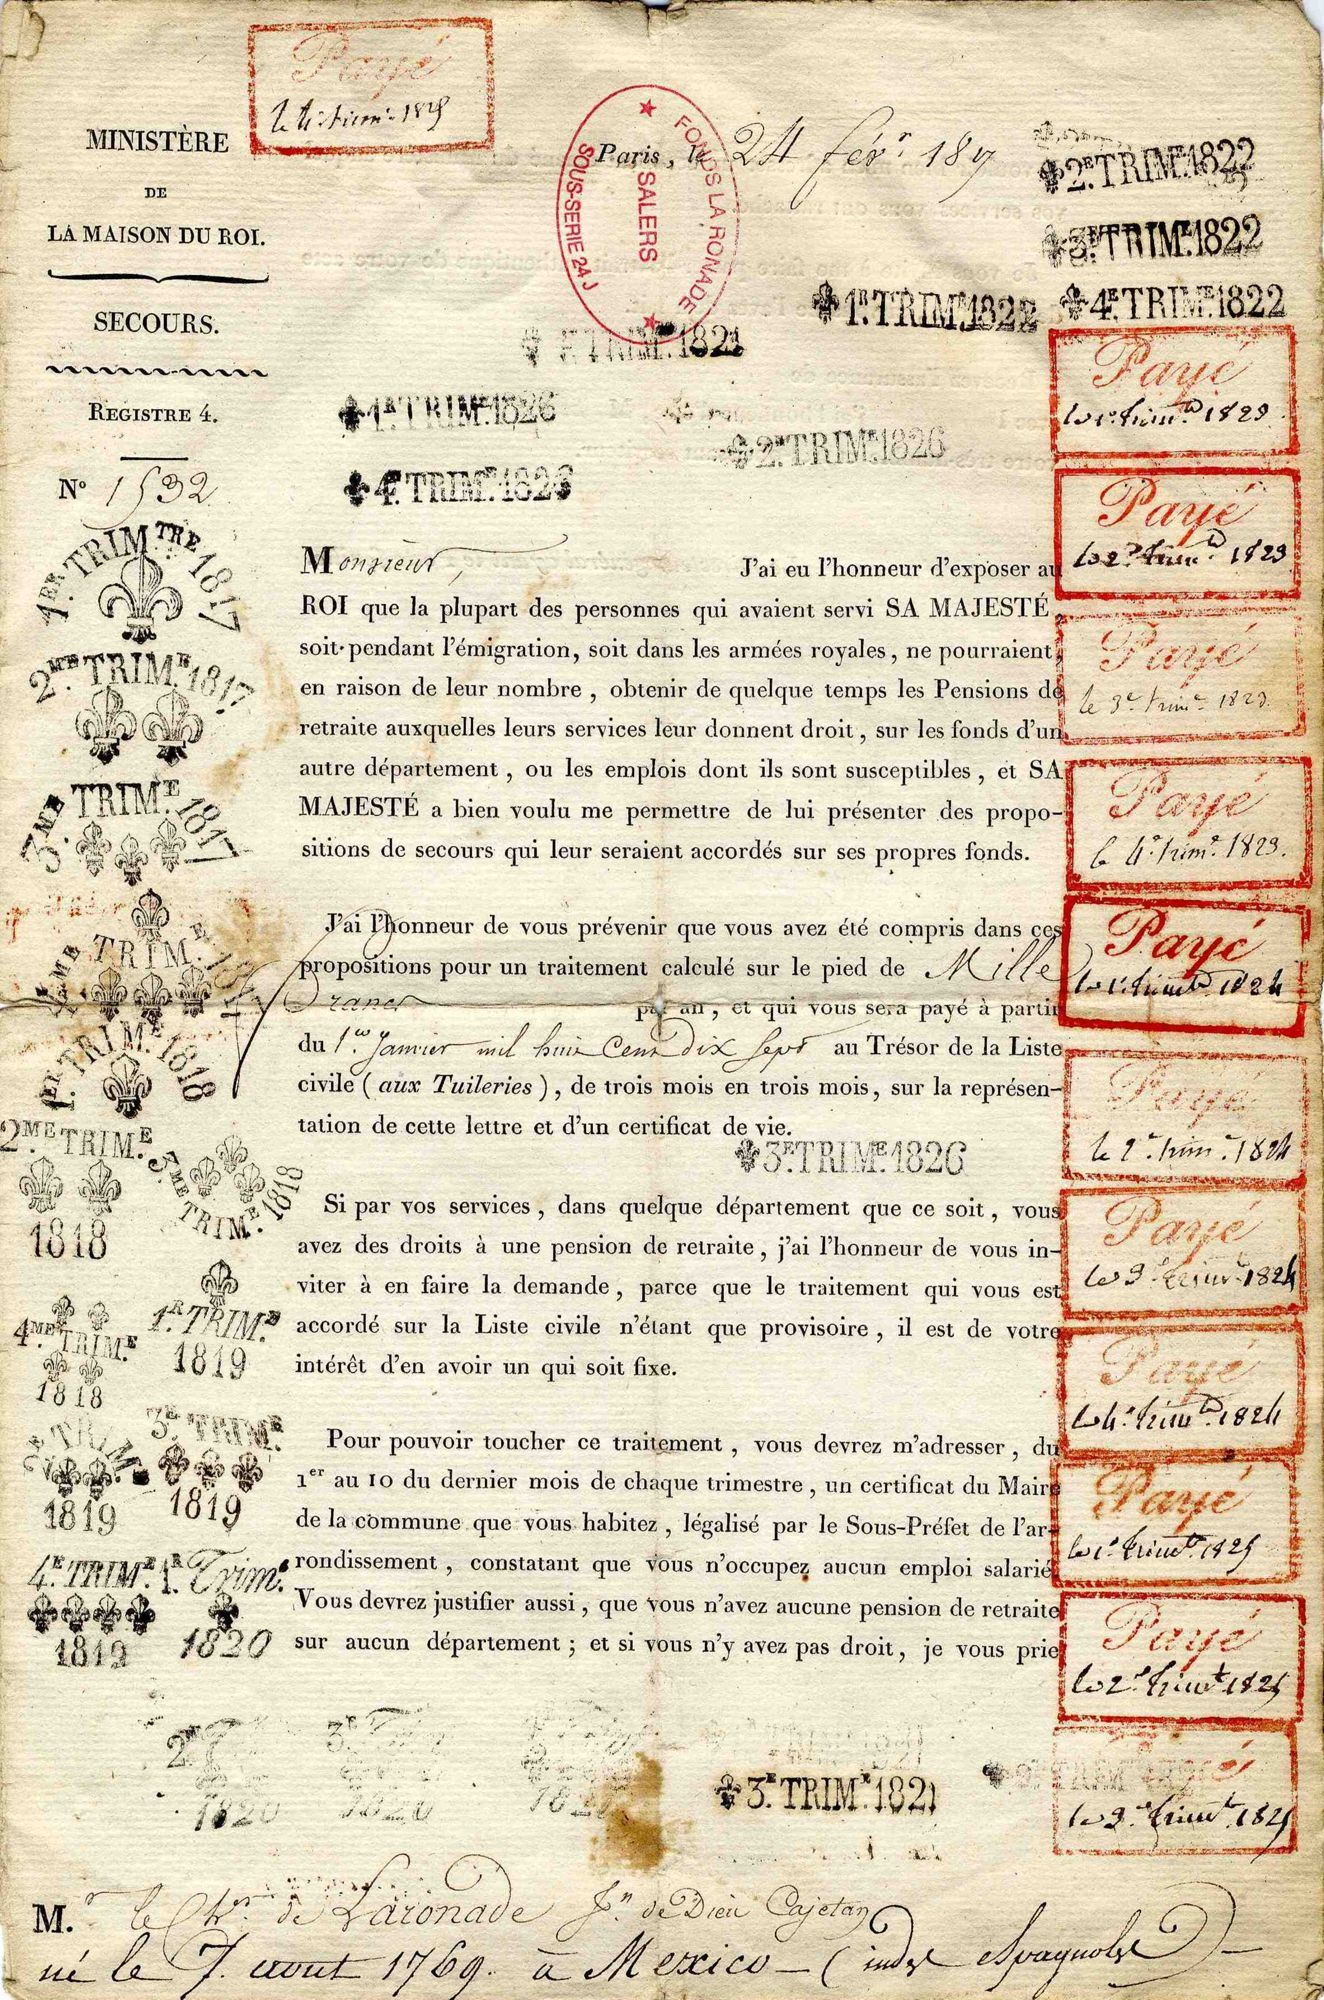 Payé
le 4e. trime. 1825
MINISTÈRE
DE
LA MAISON DU ROI.
SECOURS.
REGISTRE 4.
N° 1532
Paris, le 24 févr. 1817
FONDS LA RONADE
SALERS
SOUS-SERIE 24 J
2E. TRIME. 1822
3E. TRIME. 1822
1R. TRIME. 1822
4E. TRIME. 1822
TRIME. 1821
1R. TRIME. 1826
2E. TRIME. 1826
4E. TRIME. 1826
1ER. TRIMTRE 1817
2ME. TRIME. 1817
3ME. TRIME. 1817
4EME TRIME. 1817
1ER. TRIME. 1818
2ME TRIME.
1818
3ME TRIME. 1818
4ME TRIME.
1818
1R. TRIME.
1819
2E TRIME.
1819
3E. TRIME.
1819
4E. TRIME.
1819
1R. Trime.
1820
Monsieur, J'ai eu l'honneur d'exposer au
ROI que la plupart des personnes qui avaient servi SA MAJESTÉ,
soit pendant l'émigration, soit dans les armées royales, ne pourraient,
en raison de leur nombre, obtenir de quelque temps les Pensions de
retraite auxquelles leurs services leur donnent droit, sur les fonds d'un
autre département, ou les emplois dont ils sont susceptibles, et SA
MAJESTÉ a bien voulu me permettre de lui présenter des propo-
sitions de secours qui leur seraient accordés sur ses propres fonds.
J'ai l'honneur de vous prévenir que vous avez été compris dans ces
propositions pour un traitement calculé sur le pied de Mille
Francs par an, et qui vous sera payé à partir
du 1er. Janvier mil huit Cent dix Sept au Trésor de la Liste
civile (aux Tuileries), de trois mois en trois mois, sur la représen-
tation de cette lettre et d'un certificat de vie.
3E. TRIME. 1826
Si par vos services, dans quelque département que ce soit, vous
avez des droits à une pension de retraite, j'ai l'honneur de vous in-
viter à en faire la demande, parce que le traitement qui vous est
accordé sur la Liste civile n'étant que provisoire, il est de votre
intérêt d'en avoir un qui soit fixe.
Pour pouvoir toucher ce traitement, vous devrez m'adresser, du
1er au 10 du dernier mois de chaque trimestre, un certificat du Maire
de la commune que vous habitez, légalisé par le Sous-Préfet de l'ar-
rondissement, constatant que vous n'occupez aucun emploi salarié.
Vous devrez justifier aussi, que vous n'avez aucune pension de retraite
sur aucun département; et si vous n'y avez pas droit, je vous prie
Payé
le 1e. trime. 1823
Payé
le 2e. trime. 1823
Payé
le 3e. trime. 1823.
Payé
le 4e. trime. 1823.
Payé
le 1e. trime. 1824
Payé
le 2e. trime. 1824
Payé
le 3e. trime. 1824
Payé
le 4e. trime. 1824
Payé
le 1e. trime. 1825
Payé
le 2e. trime. 1825
le 3e. trime. 1825
2E
1820
3E
1820
3E. TRIME. 1821
M.r le Cher. de Laronade Jn. de Dieu Cajetan
né le 7. aout 1769. à Mexico - (indes Espagnoles) -